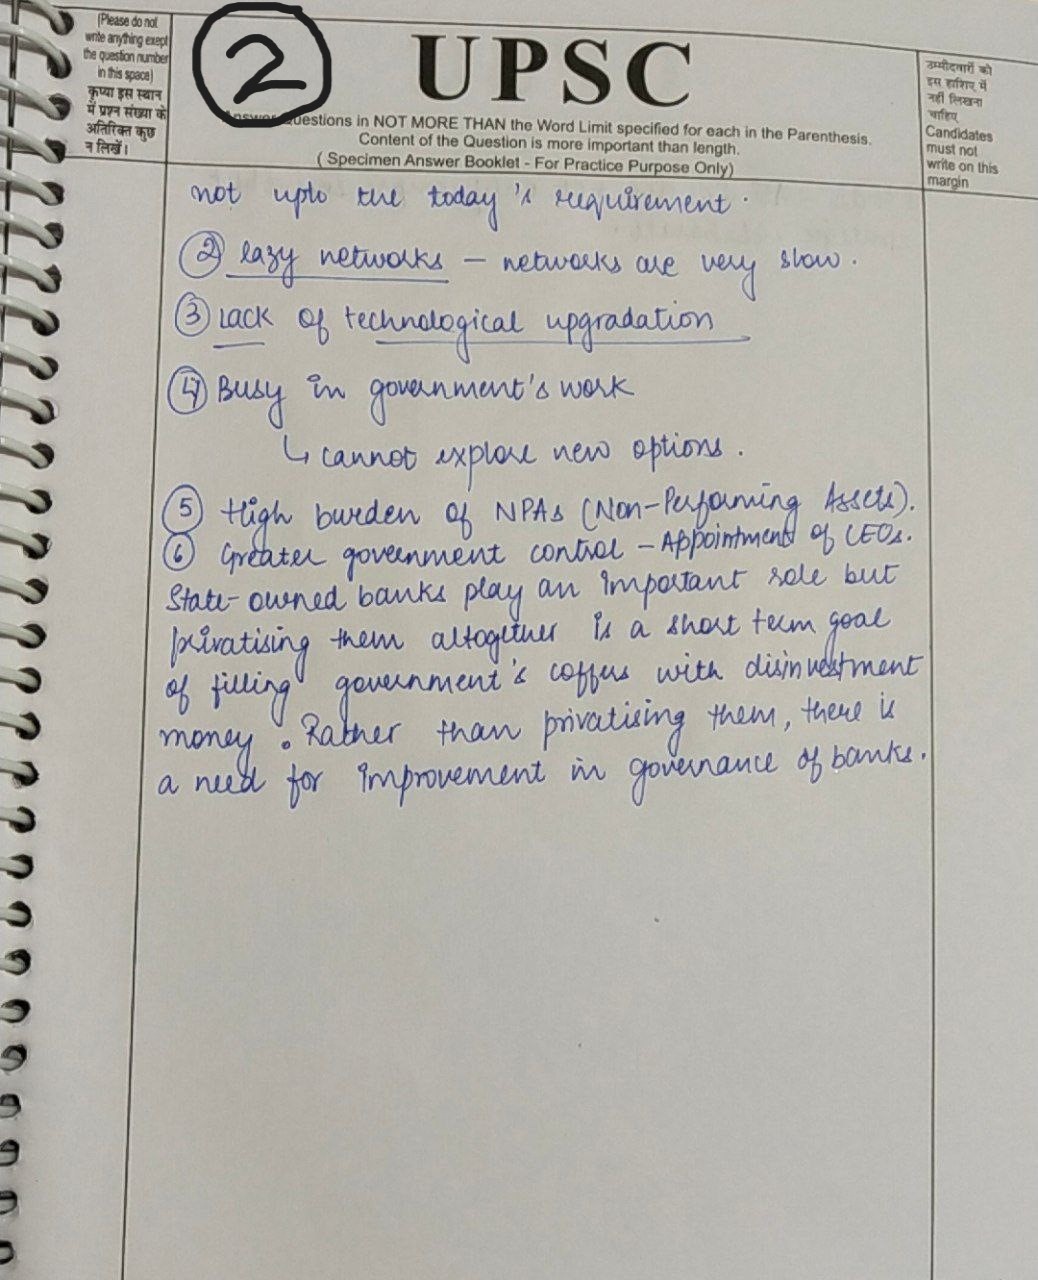 (Please do not
write anything exept
the question number
in this space)
कृप्या इस स्थान
में प्रश्न संख्या के
अतिरिक्त कुछ
न लिखें।
2
UPSC
Answer Questions in NOT MORE THAN the Word Limit specified for each in the Parenthesis.
Content of the Question is more important than length.
( Specimen Answer Booklet - For Practice Purpose Only)
उम्मीदवारों को
इस हाशिए में
नहीं लिखना
चाहिए
Candidates
must not
write on this
margin
not upto the today's requirement.
② lazy networks – networks are very slow.
③ Lack of technological upgradation
④ Busy in government's work
↳ cannot explore new options.
⑤ High burden of NPAs (Non-Performing Assets).
⑥ Greater government control – Appointment of CEOs.
State-owned banks play an important role but
privatising them altogether is a short term goal
of filling government's coffers with disinvestment
money. Rather than privatising them, there is
a need for improvement in governance of banks.